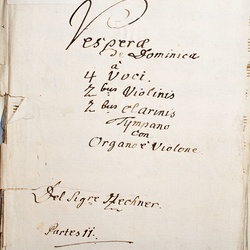 Vesperæ
De Dominica
à
4 Voci.
2 bus Violinis
2 bus Clarinis
Tympano
con
Organo è Violone
Del Sigre Hechner.
Partes 11.